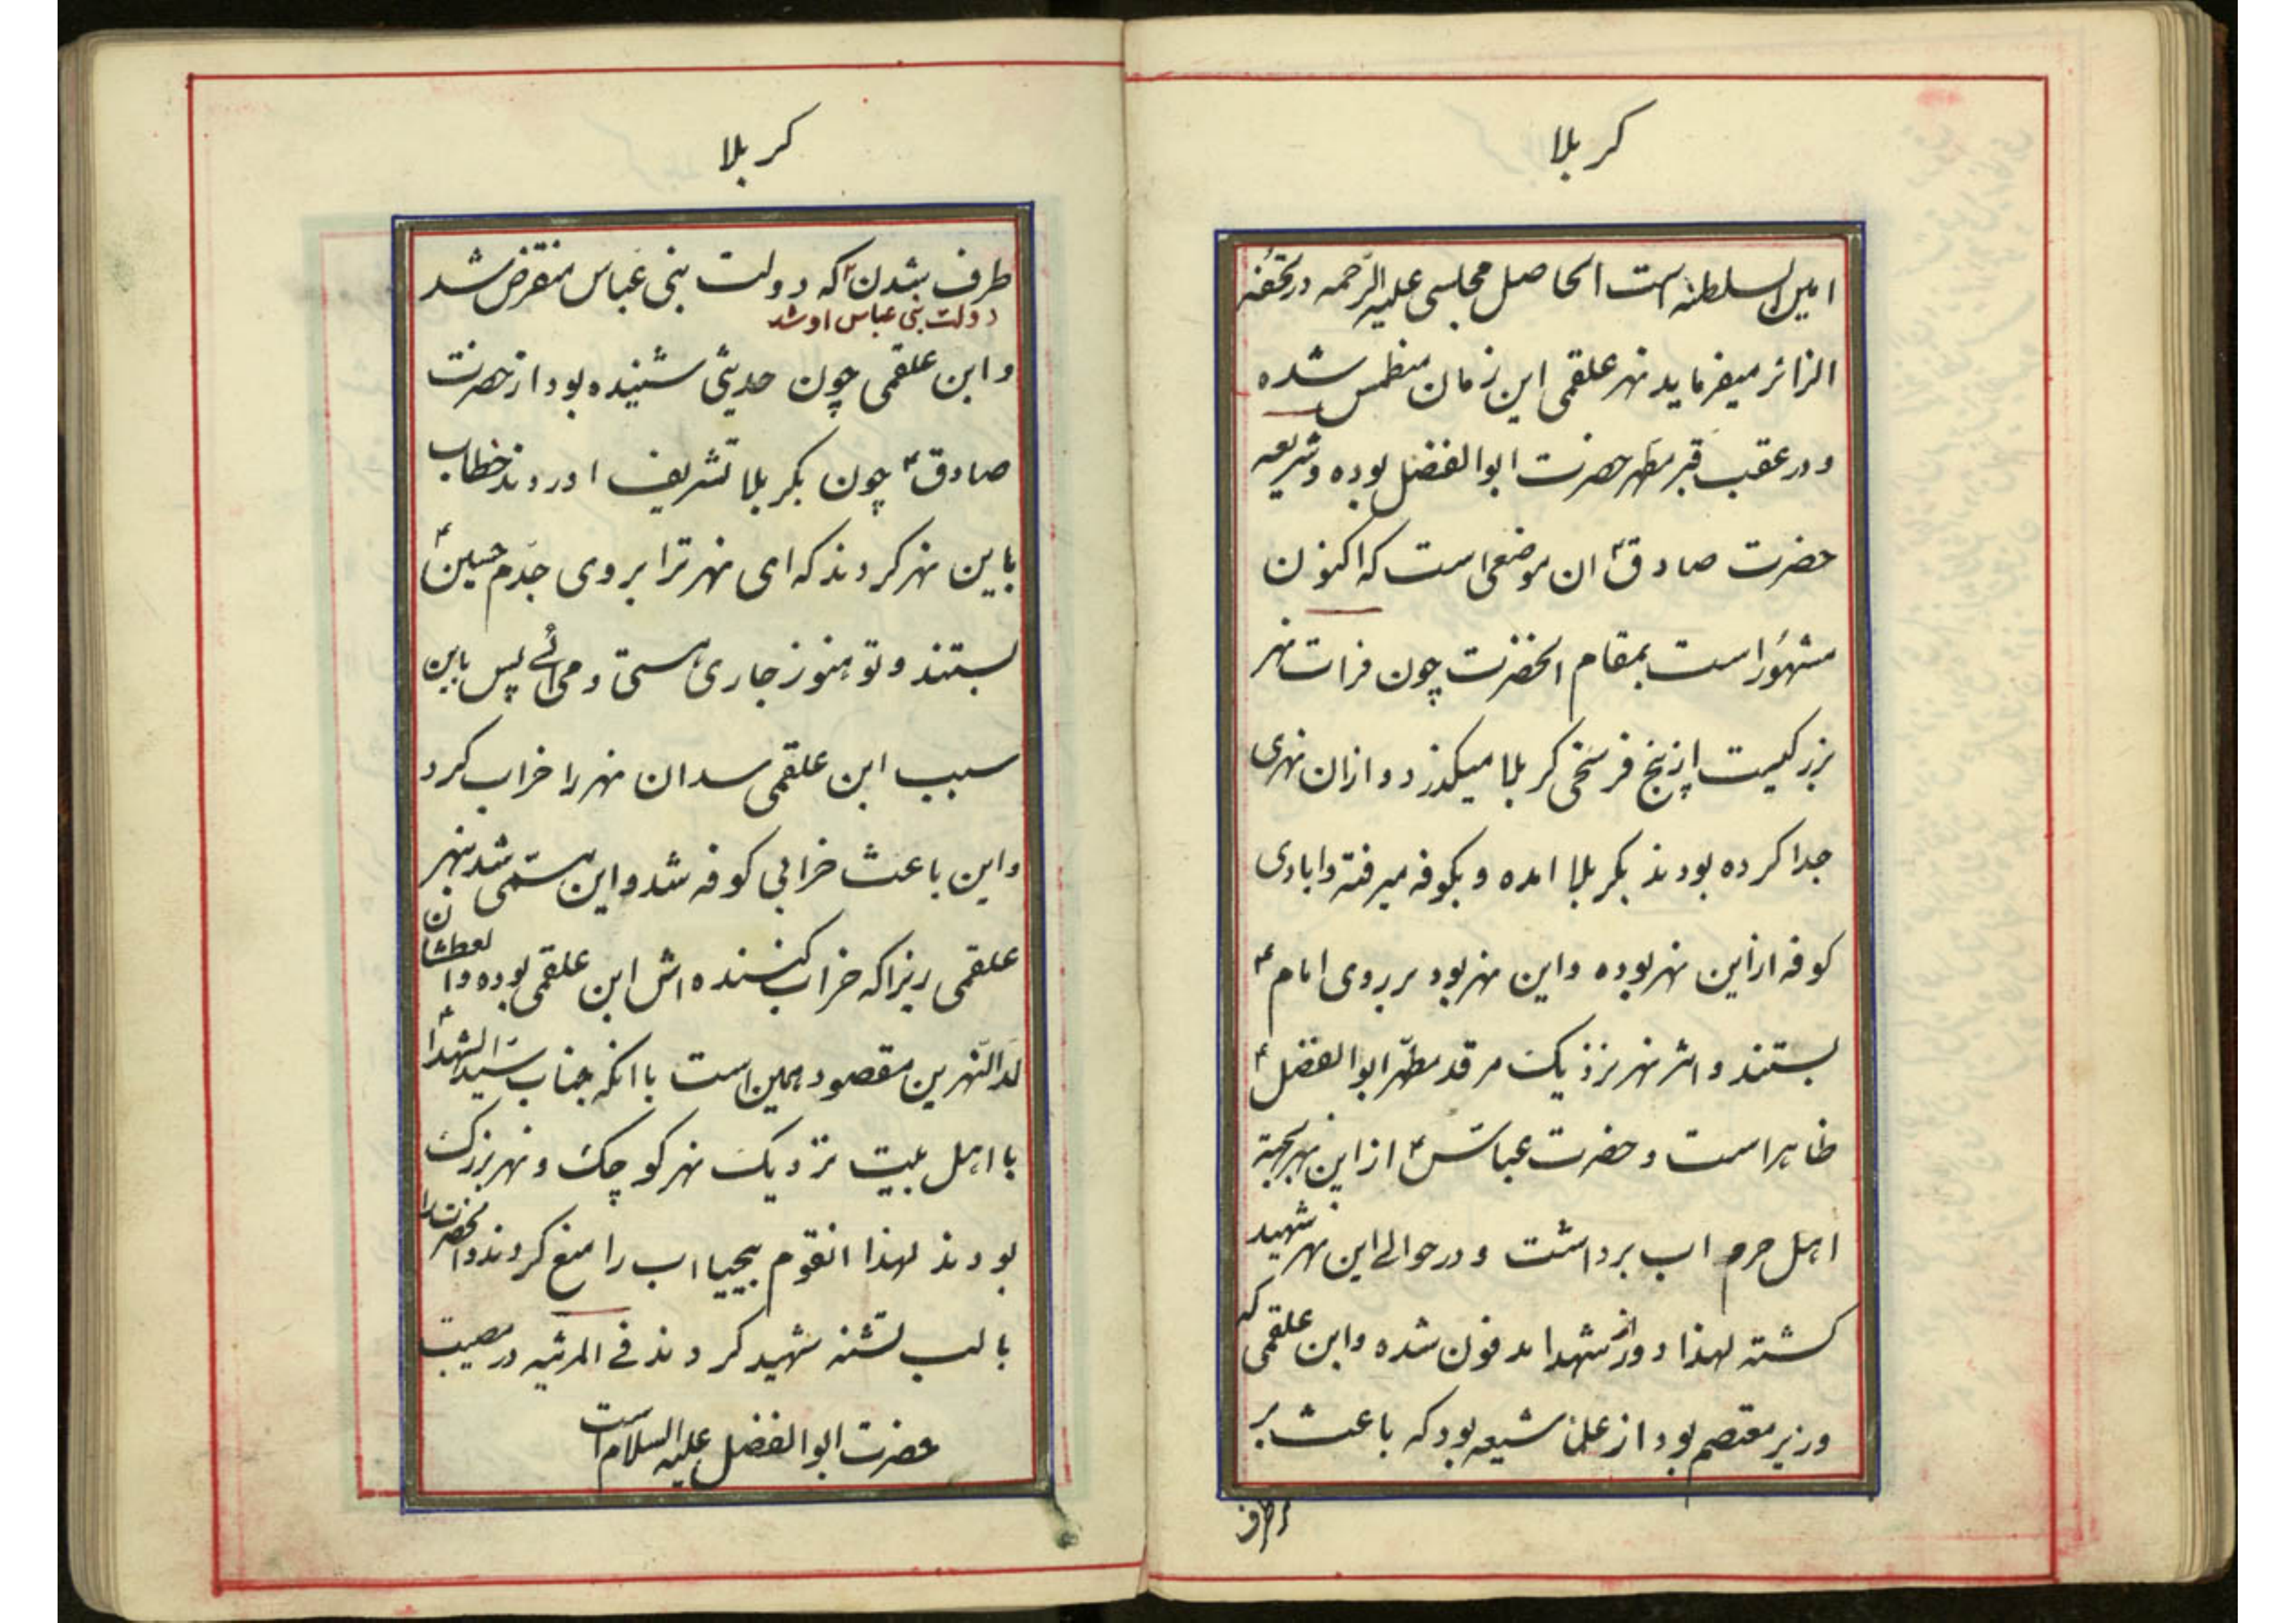 کربلا
امین السلطنه است الحاصل مجلسی علیه الرّحمه در تحفه
الزائر میفرماید نهر علقمی این زمان منطمس شده
و در عقب قبر مطهر حضرت ابوالفضل بوده و شریعه
حضرت صادق ع ان موضعی است که اکنون
مشهور است بمقام انحضرت چون فرات نهر
بزرکیست از پنج فرسخی کربلا میکذرد و ازان نهری
جدا کرده بودند بکربلا امده و بکوفه میرفته و ابادی
کوفه از این نهر بوده و این نهر بود بر روی امام ع
بستند و اثر نهر نزدیک مرقد مطهّر ابوالفضل ع
ظاهر است و حضرت عباس ع از این نهر بجهة
اهل حرم اب برداشت و در حوالے این نهر شهید
کشته لهذا دور از شهدا مدفون شده و ابن علقمی که
وزیر معتصم بود از علمای شیعه بود که باعث بر
بر طرف
کربلا
طرف شدن که دولت بنی عباس منقرض شد
دولت بنی عباس او شد
و ابن علقمی چون حدیثی شنیده بود از حضرت
صادق ع چون بکربلا تشریف اوردند خطاب
باین نهر کردند که ای نهر ترا بروی جدّم حسین ع
بستند و تو هنوز جاری هستی و می ائے پس باین
سبب ابن علقمی سد ان نهر را خراب کرد
و این باعث خرابی کوفه شد و این مسمّی شد بنهر
علقمی زیرا که خراب کننده اش ابن علقمی بوده و العطشان
لدالنّهرین مقصود همین است با انکه جناب سیّد الشهدا ع
با اهل بیت نزدیک نهر کوچک و نهر بزرک
بودند لهذا انقوم بیحیا اب را منع کردند و انحضرت را
با لب تشنه شهید کردند فے المرثیه در مصیبت
حضرت ابوالفضل علیه السلام است